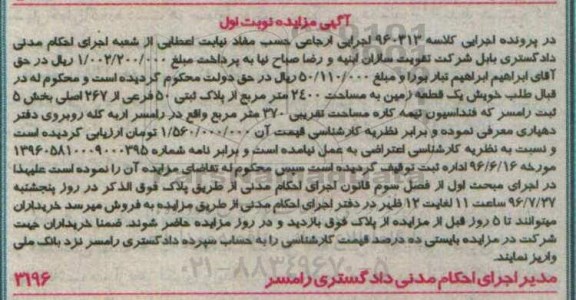 آگهی مزایده نوبت اول
در پرونده اجرایی کلاسه ۹۶۰۳۱۳ اجرایی ارجاعی حسب مفاد نیابت اعطایی از شعبه اجرای احکام مدنی
دادگستری بابل شرکت تقویت سازان ابنیه و رضا صباح نیا به پرداخت مبلغ ۱/۰۰۲/۲۰۰/۰۰۰ ریال در حق
آقای ابراهیم ابراهیم تبار بورا و مبلغ ۵۰/۱۱۰/۰۰۰ ریال در حق دولت محکوم گردیده است و محکوم له در
قبال طلب خویش یک قطعه زمین به مساحت ۲۴۰۰ متر مربع از پلاک ثبتی ۵۰ فرعی از ۲۶۷ اصلی بخش ۵
ثبت رامسر که فنداسیون نیمه کاره مساحت تقریبی ۳۷۰ متر مربع واقع در رامسر اربه کله روبروی دفتر
دهیاری معرفی نموده و برابر نظریه کارشناسی قیمت آن ۱/۵۶۰/۰۰۰/۰۰۰ تومان ارزیابی گردیده است
و نسبت به نظریه کارشناسی اعتراضی به عمل نیامده است و برابر نامه شماره ۱۳۹۶۰۵۸۱۰۰۰۹۰۰۰۳۹۵
مورخه ۹۶/۶/۱۶ اداره ثبت توقیف گردیده است سپس محکوم له تقاضای مزایده آن را نموده است علیهذا
در اجرای مبحث اول از فصل سوم قانون اجرای احکام مدنی از طریق پلاک فوق الذکر در روز پنجشنبه
۹۶/۷/۲۷ ساعت ۱۱ لغایت ۱۲ ظهر در دفتر اجرای احکام مدنی از طریق مزایده به فروش میرسد خریداران
میتوانند تا ۵ روز قبل از مزایده از پلاک فوق بازدید و در روز مزایده حاضر شوند. ضمنا خریداران جهت
شرکت در مزایده بایستی ده درصد قیمت کارشناسی را به حساب سپرده دادگستری رامسر نزد بانک ملی
واریز نمایند.
مدیر اجرای احکام مدنی دادگستری رامسر
۳۱۹۶